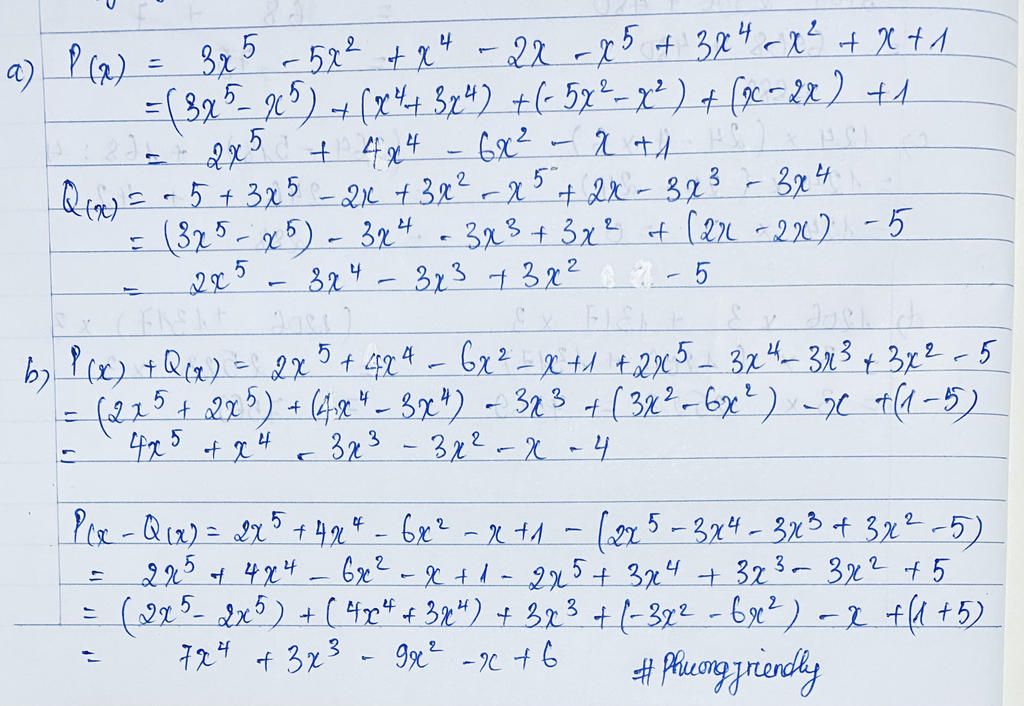 a) P(x) = 3x⁵ - 5x² + x⁴ - 2x - x⁵ + 3x⁴ - x² + x + 1
= (3x⁵ - x⁵) + (x⁴ + 3x⁴) + (- 5x² - x²) + (x - 2x) + 1
= 2x⁵ + 4x⁴ - 6x² - x + 1
Q(x) = - 5 + 3x⁵ - 2x + 3x² - x⁵ + 2x - 3x³ - 3x⁴
= (3x⁵ - x⁵) - 3x⁴ - 3x³ + 3x² + (2x - 2x) - 5
= 2x⁵ - 3x⁴ - 3x³ + 3x² - 5
b) P(x) + Q(x) = 2x⁵ + 4x⁴ - 6x² - x + 1 + 2x⁵ - 3x⁴ - 3x³ + 3x² - 5
= (2x⁵ + 2x⁵) + (4x⁴ - 3x⁴) - 3x³ + (3x² - 6x²) - x + (1 - 5)
= 4x⁵ + x⁴ - 3x³ - 3x² - x - 4
P(x - Q(x) = 2x⁵ + 4x⁴ - 6x² - x + 1 - (2x⁵ - 3x⁴ - 3x³ + 3x² - 5)
= 2x⁵ + 4x⁴ - 6x² - x + 1 - 2x⁵ + 3x⁴ + 3x³ - 3x² + 5
= (2x⁵ - 2x⁵) + (4x⁴ + 3x⁴) + 3x³ + (-3x² - 6x²) - x + (1 + 5)
= 7x⁴ + 3x³ - 9x² - x + 6
# Phuongfriendly